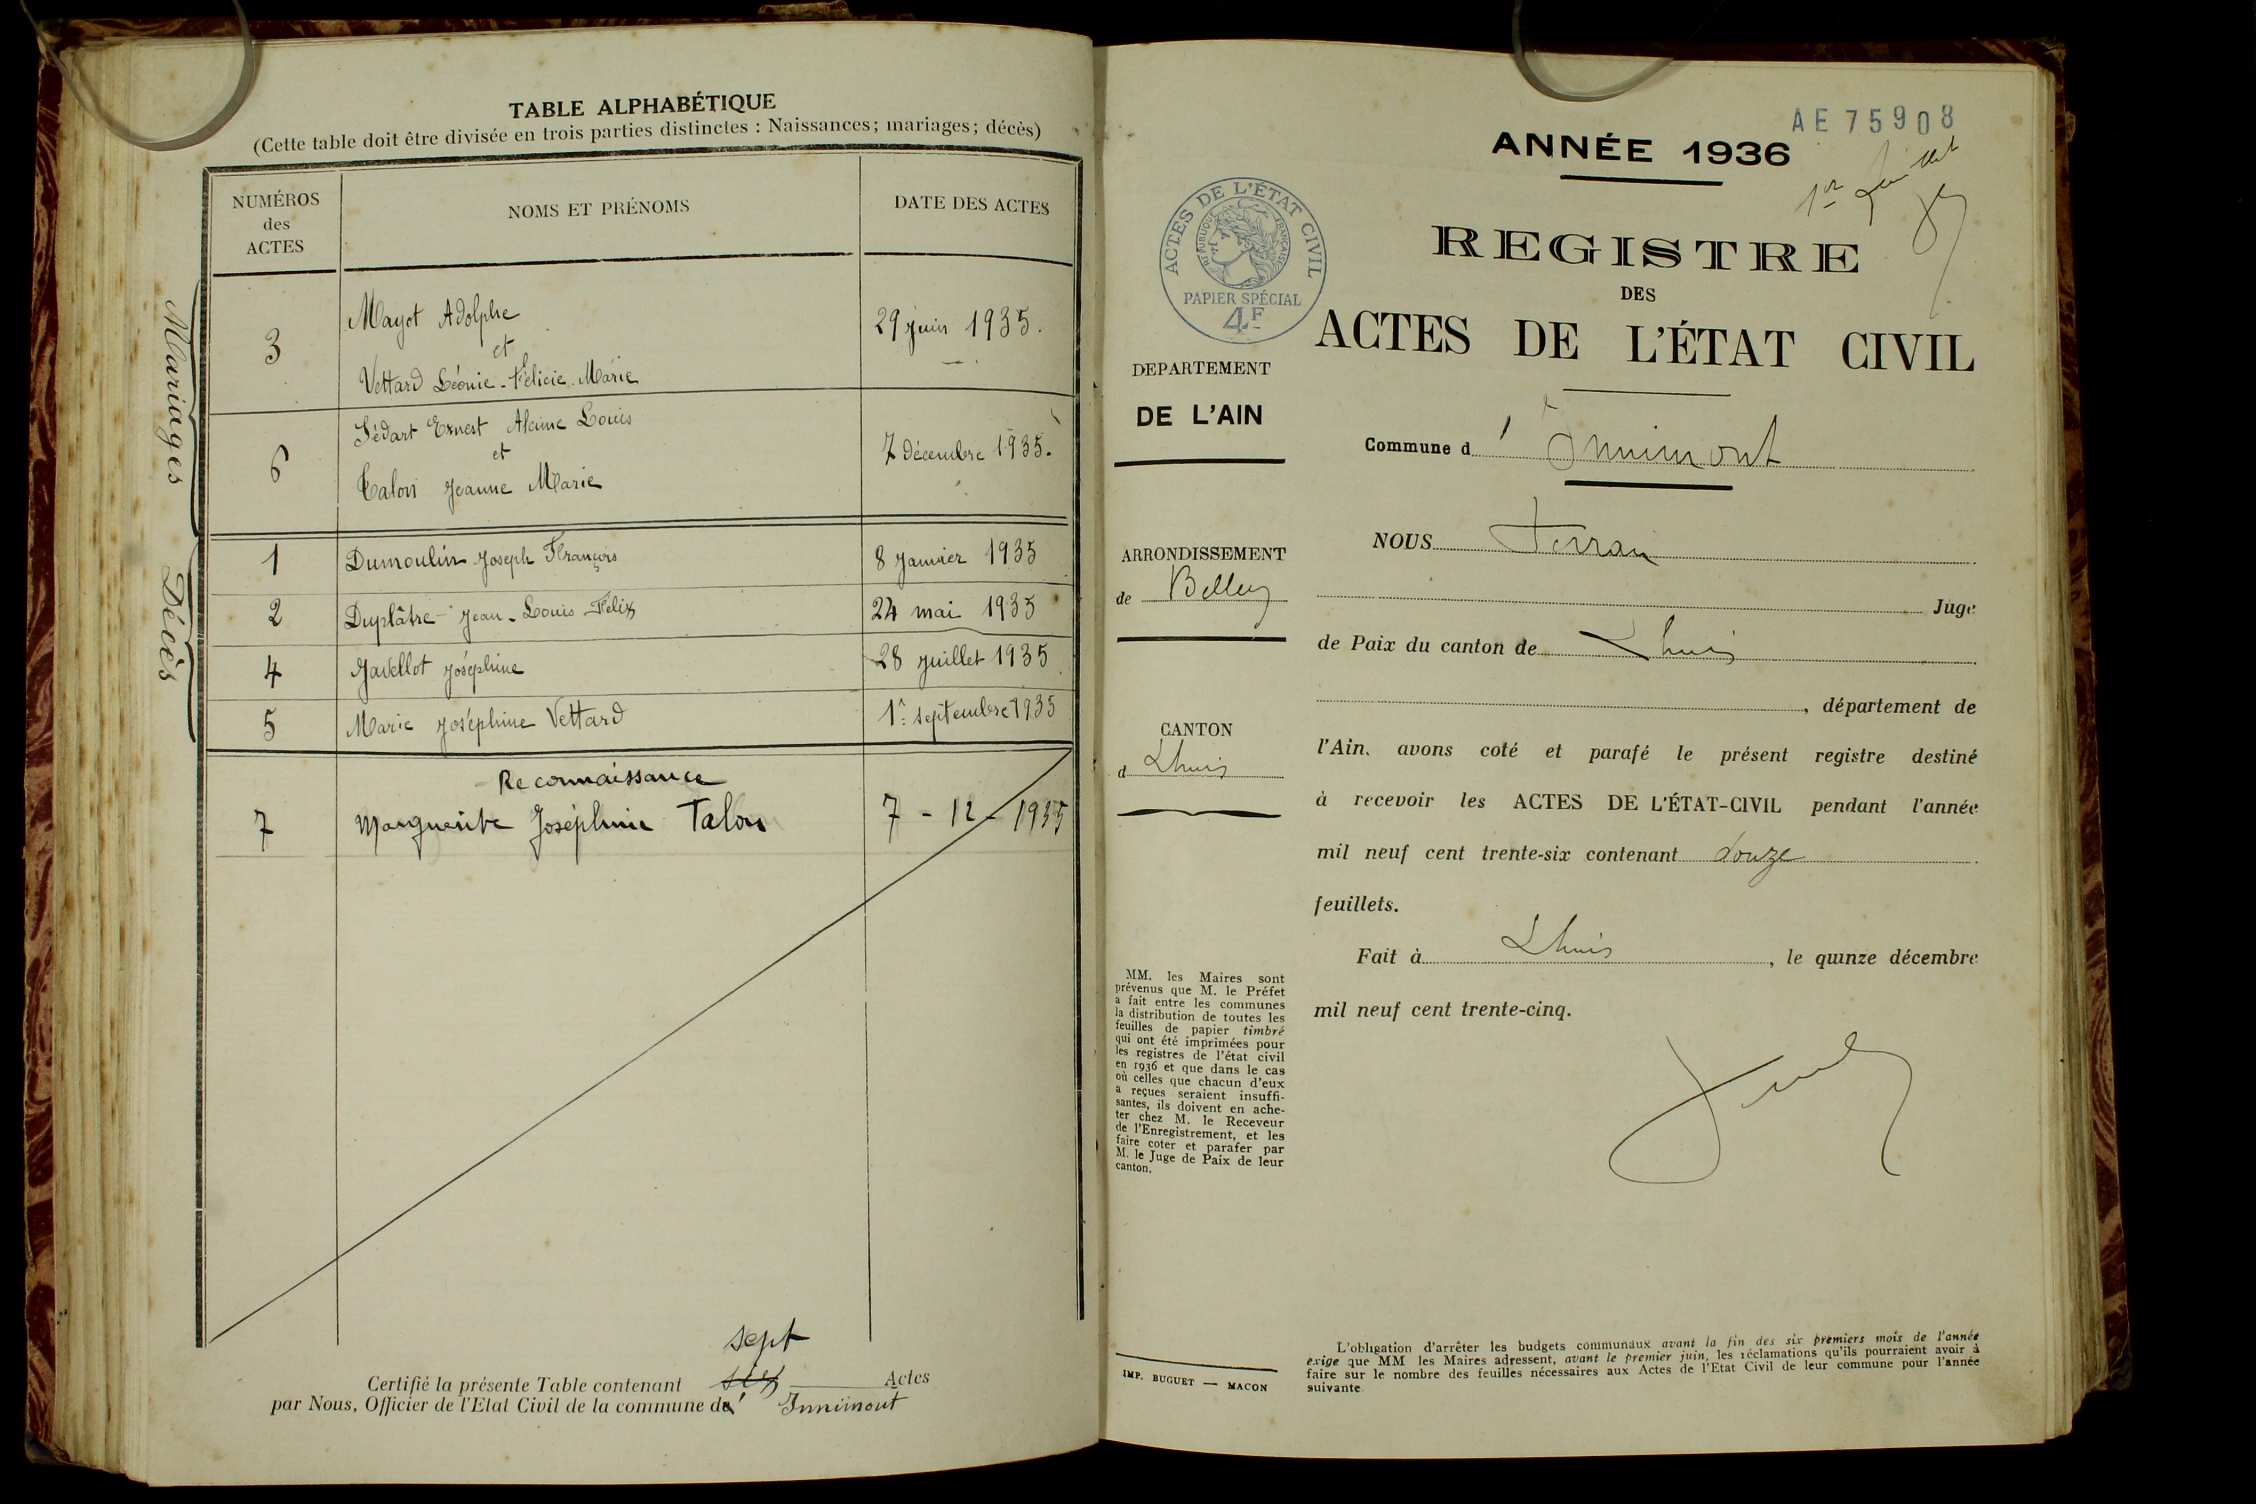 TABLE ALPHABÉTIQUE
(Cette table doit être divisée en trois parties distinctes : Naissances; mariages; décès)
NUMÉROS
des
ACTES
NOMS ET PRÉNOMS
DATE DES ACTES
Mariages
3
Mayot Adolphe
et
Vettard Léonie-Félicie-Marie
29 juin 1935.
6
Sédart Ernest Alcime Louis
et
Talon Jeanne Marie
7 décembre 1935.
Décès
1 Dumoulin Joseph François 8 Janvier 1935
2 Duplâtre Jean-Louis Félix 24 mai 1935
4 Javellot Joséphine 28 juillet 1935
5 Marie Joséphine Vettard 1er septembre 1935
Reconnaissance
7 Marguerite Joséphine Talon 7-12-1935
sept
Certifié la présente Table contenant six Actes
par Nous, Officier de l'Etat Civil de la commune d' Innimont
AE 75908
ANNÉE 1936
1er feuillet
REGISTRE
DES
ACTES DE L'ÉTAT CIVIL
Commune d' Innimont
ACTES DE L'ÉTAT CIVIL
RÉPUBLIQUE FRANÇAISE
PAPIER SPÉCIAL
4F
DEPARTEMENT
DE L'AIN
ARRONDISSEMENT
de Belley
CANTON
d Lhuis
MM. les Maires sont
prévenus que M. le Préfet
a fait entre les communes
la distribution de toutes les
feuilles de papier timbré
qui ont été imprimées pour
les registres de l'état civil
en 1936 et que dans le cas
où celles que chacun d'eux
a reçues seraient insuffi-
santes, ils doivent en ache-
ter chez M. le Receveur
de l'Enregistrement, et les
faire coter et parafer par
M. le Juge de Paix de leur
canton.
IMP. BUGUET — MACON
NOUS Ferran
Juge
de Paix du canton de Lhuis
, département de
l'Ain, avons coté et parafé le présent registre destiné
à recevoir les ACTES DE L'ÉTAT-CIVIL pendant l'année
mil neuf cent trente-six contenant douze
feuillets.
Fait à Lhuis, le quinze décembre
mil neuf cent trente-cinq.
L'obligation d'arrêter les budgets communaux avant la fin des six premiers mois de l'année
exige que MM les Maires adressent, avant le premier juin, les réclamations qu'ils pourraient avoir à
faire sur le nombre des feuilles nécessaires aux Actes de l'Etat Civil de leur commune pour l'année
suivante.